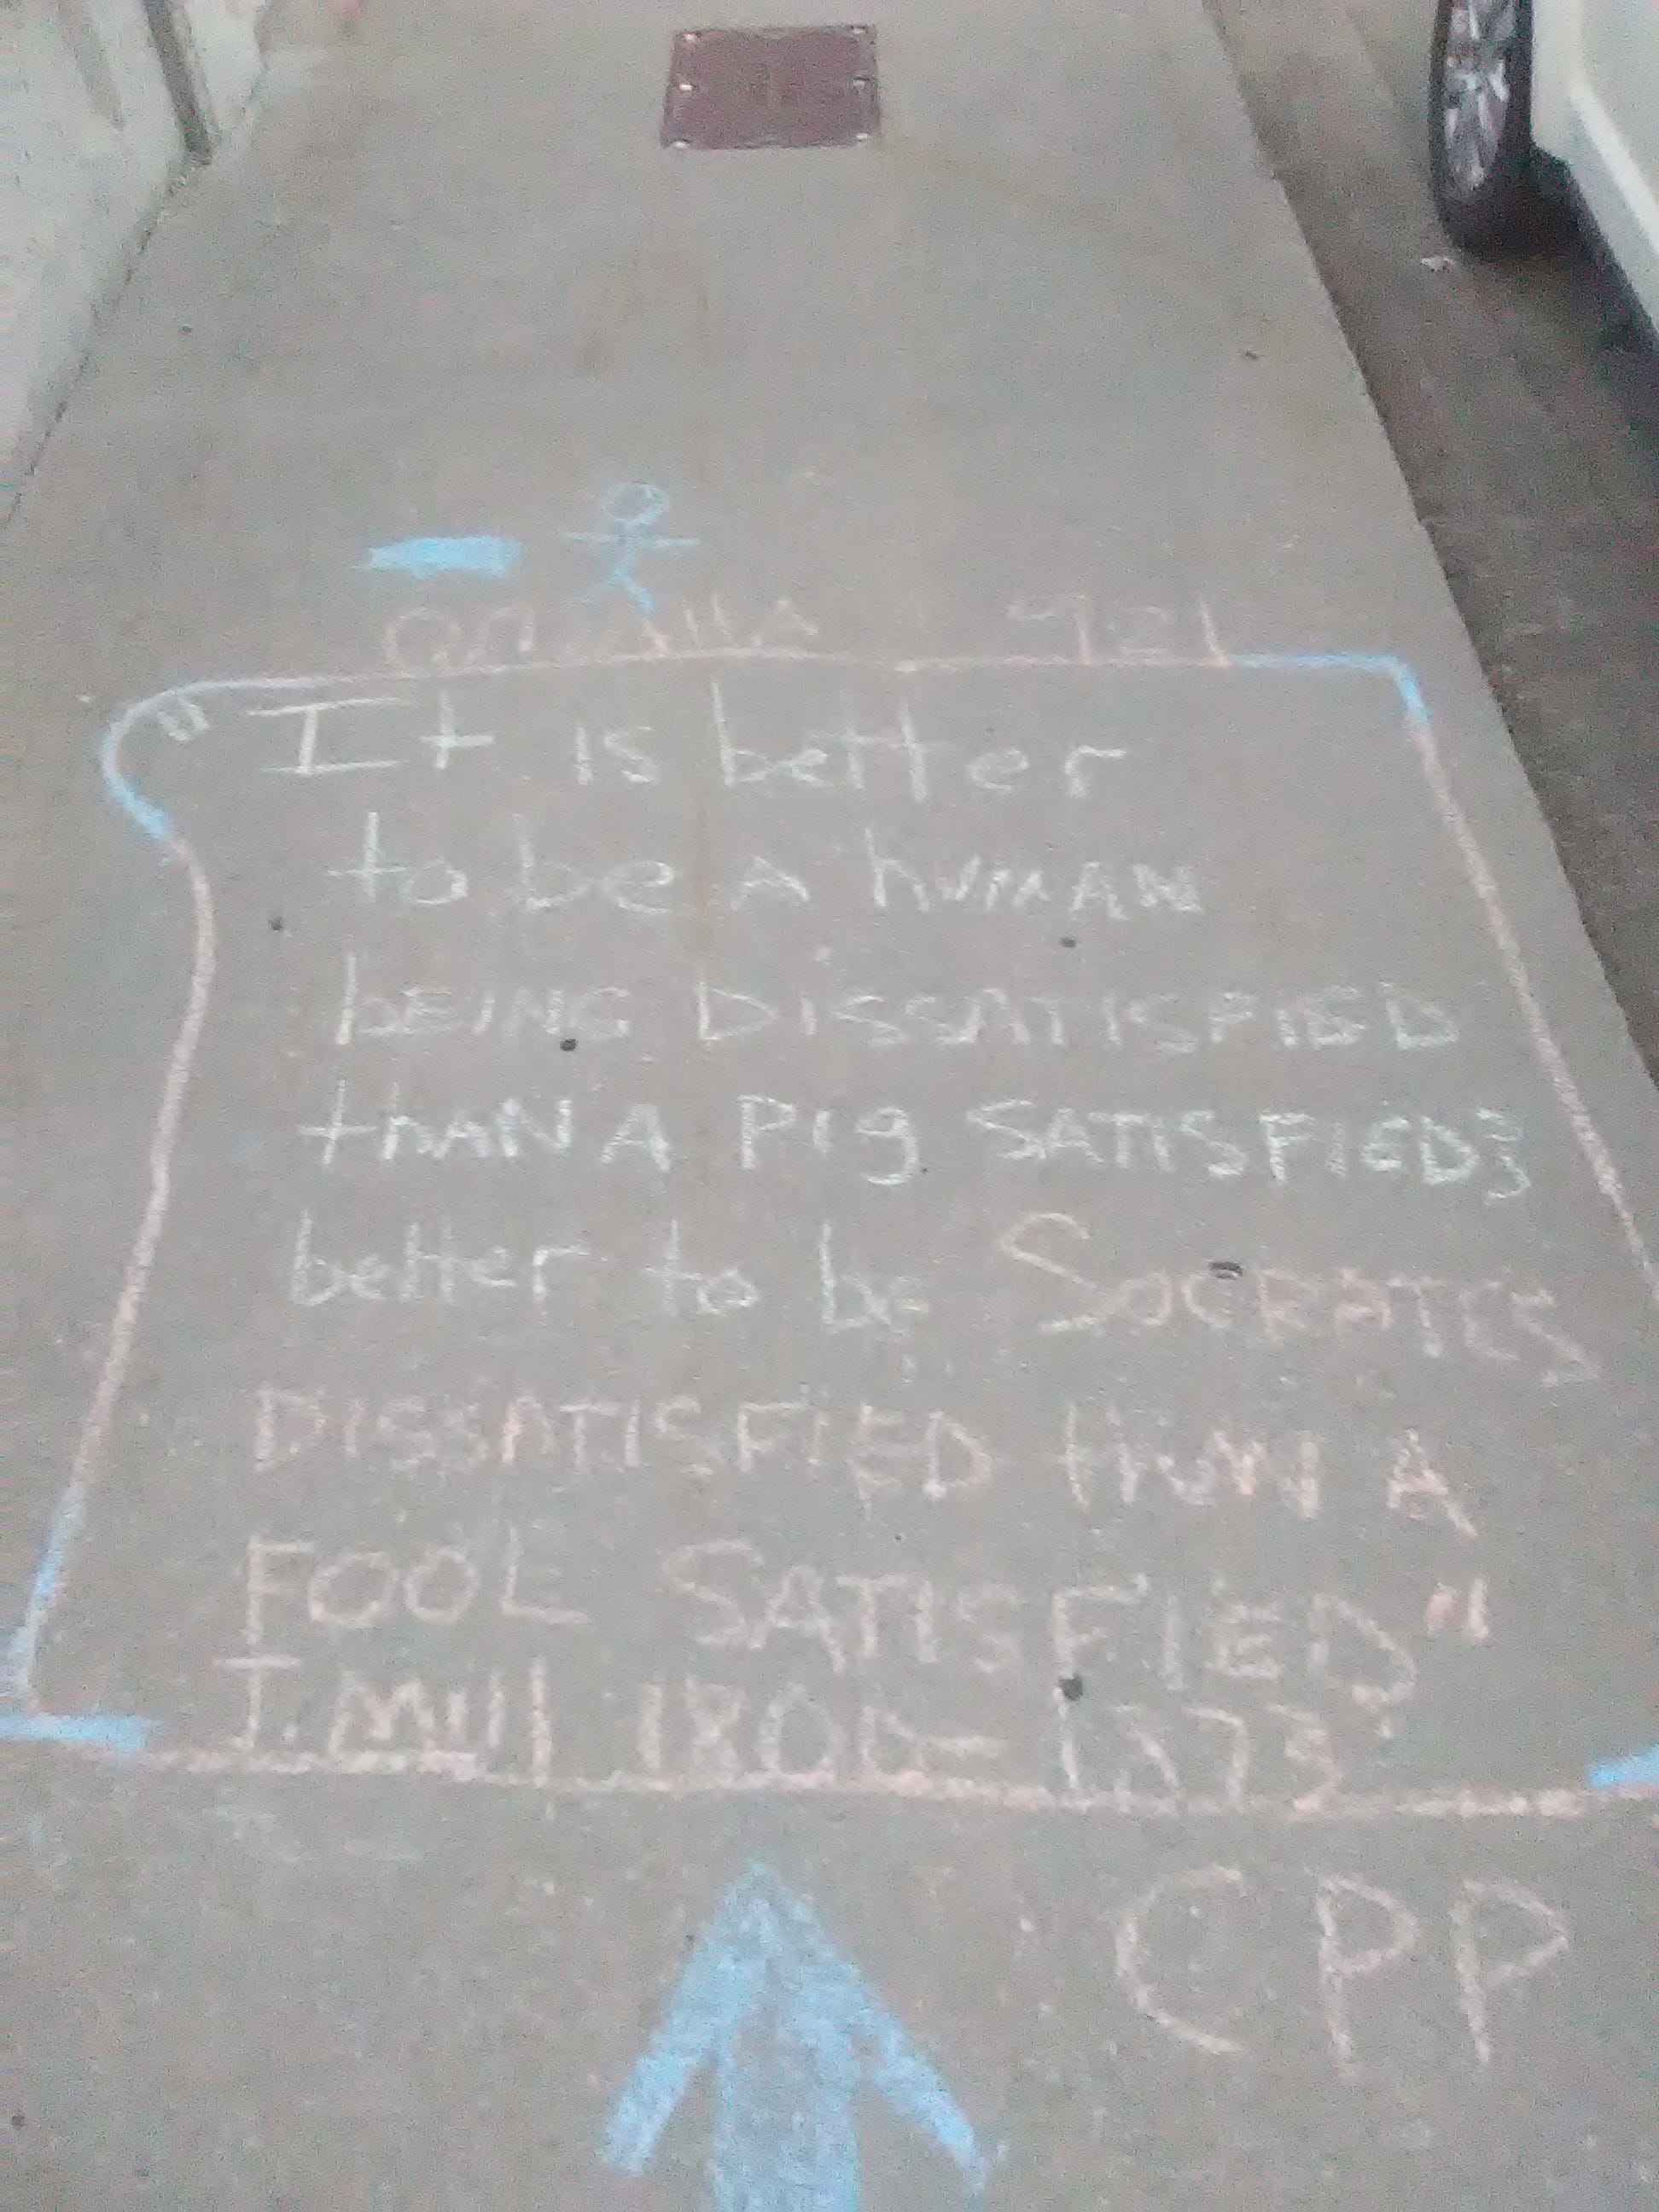 921
"It is better
to be A humAN
bEING DISSATISFIED
thAN A PIg SATISFIED;
better to be SOCRATES
DISSATISFIED thAN A
FOOL SATISFIED"
Mill
CPP